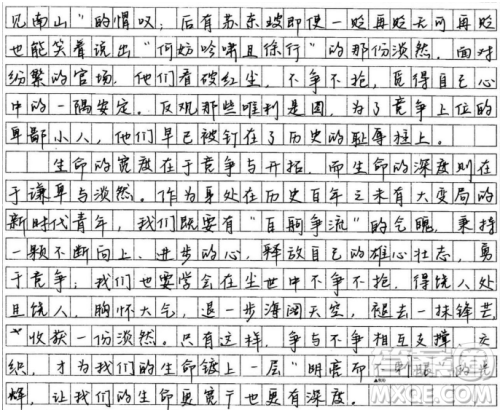 见南山”的慨叹；后有苏东坡即使一贬再贬无可再贬
也能笑着说出“何妨吟啸且徐行”的那份淡然。面对
纷繁的官场，他们看破红尘，不争不抢，觅得自己心
中的一隅安定。反观那些唯利是图，为了竞争上位的
卑鄙小人，他们早已被钉在了历史的耻辱柱上。
生命的宽度在于竞争与开拓，而生命的深度则在
于谦卑与淡然。作为身处在历史百年之未有大变局的
新时代青年，我们既要有“百舸争流”的气魄，秉持
一颗不断向上、进步的心，释放自己的雄心壮志，勇
于竞争；我们也要学会在尘世中不争不抢，得饶人处
且饶人，胸怀大气，退一步海阔天空，褪去一抹锋芒
收获一份淡然。只有这样，争与不争相互支撑、交
织，才为我们的生命镀上一层“明亮却不刺眼”的光
辉，让我们的生命更宽广也更有深度。
MXQE.COM